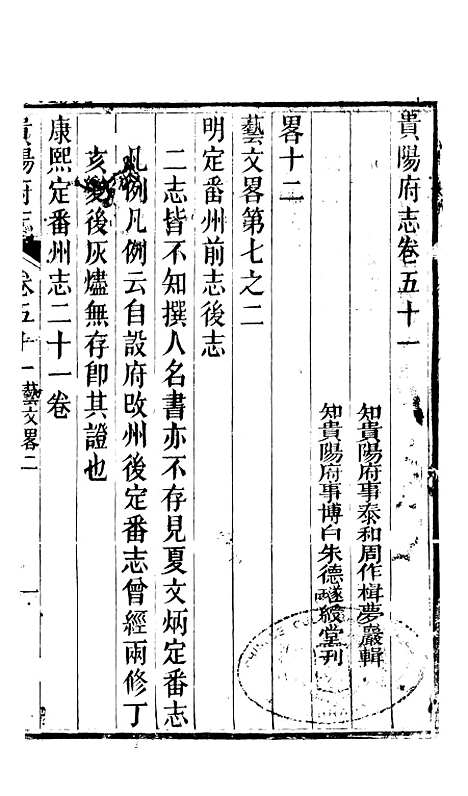 貴陽府志卷五十一
知貴陽府事泰和周作楫夢巖輯
知貴陽府事博白朱德璲綬堂刊
畧十二
藝文畧第七之二
明定番州前志後志
二志皆不知撰人名書亦不存見夏文炳定番志
凡例凡例云自設府改州後定番志曾經兩修丁
亥變後灰燼無存卽其證也
康熙定番州志二十一卷
貴陽府志 卷五十一 藝文畧二 一